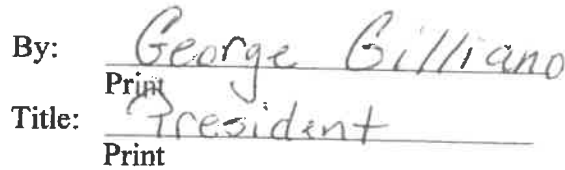 By: George Gilliano
Print
Title: President
Print